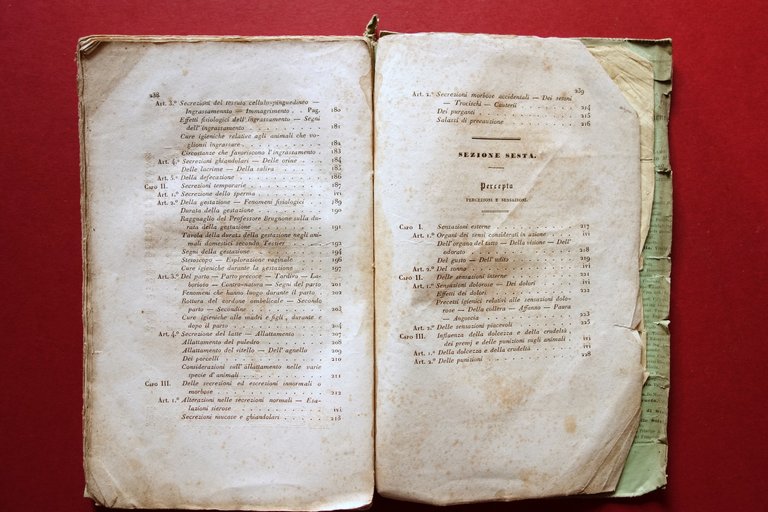 238
Art. 3.º Secrezioni del tessuto celluloso-pinguedineo —
Ingrassamento — Immagrimento . . Pag. 180
Effetti fisiologici dell'ingrassamento — Segni
dell'ingrassamento . . . . . . . . . . 181
Cure igieniche relative agli animali che vo-
glionsi ingrassare . . . . . . . . . . 182
Circostanze che favoriscono l'ingrassamento . 183
Art. 4.º Secrezioni ghiandolari — Delle orine . . 184
Delle lacrime — Della saliva . . . . . . 185
Art. 5.º Della defecazione . . . . . . . . . 186
Capo II. Secrezioni temporarie . . . . . . . 187
Art. 1.º Secrezione dello sperma . . . . . . ivi
Art. 2.º Della gestazione — Fenomeni fisiologici . 189
Durata della gestazione . . . . . . . . 190
Ragguaglio del Professore Brugnone sulla du-
rata della gestazione . . . . . . . . . 191
Tavola della durata della gestazione negli ani-
mali domestici secondo Tessier . . . . . 192
Segni della gestazione . . . . . . . . . 194
Stetoscopo — Esplorazione vaginale . . . . 196
Cure igieniche durante la gestazione . . . 197
Art. 3.º Del parto — Parto precoce — Tardivo — La-
borioso — Contra-natura — Segni del parto 201
Fenomeni che hanno luogo durante il parto . 202
Rottura del cordone ombelicale — Secondo
parto — Secondine . . . . . . . . . 203
Cure igieniche alle madri e figli, durante e
dopo il parto . . . . . . . . . . . 204
Art. 4.º Secrezione del latte — Allattamento . . . 207
Allattamento del puledro . . . . . . . . 208
Allattamento del vitello — Dell'agnello . . 209
Dei porcelli . . . . . . . . . . . . 210
Considerazioni sull'allattamento nelle varie
specie d'animali . . . . . . . . . . 211
Capo III. Delle secrezioni ed escrezioni innormali o
morbose . . . . . . . . . . . . . 212
Art. 1.º Alterazioni nelle secrezioni normali — Esa-
lazioni sierose . . . . . . . . . . . ivi
Secrezioni mucose e ghiandolari . . . . . 213
239
Art. 2.º Secrezioni morbose accidentali — Dei setoni
— Trocischi — Cauterii . . . . . . . 214
Dei purganti . . . . . . . . . . . . 215
Salassi di precauzione . . . . . . . . . 216
SEZIONE SESTA.
Percepta
PERCEZIONI E SENSAZIONI.
Capo I. Sensazioni esterne . . . . . . . . 217
Art. 1.º Organi dei sensi considerati in azione . . ivi
Dell'organo del tatto — Della visione — Dell'
odorato . . . . . . . . . . . . . 218
Del gusto — Dell'udito . . . . . . . . 219
Art. 2.º Del sonno . . . . . . . . . . . . ivi
Capo II. Delle sensazioni interne . . . . . . 221
Art. 1.º Sensazioni dolorose — Dei dolori . . . . ivi
Effetti dei dolori . . . . . . . . . . 222
Precetti igienici relativi alle sensazioni dolo-
rose — Della collera — Affanno — Paura
— Angoscie . . . . . . . . . . . . 223
Art. 2.º Delle sensazioni piacevoli . . . . . . 225
Capo III. Influenza della dolcezza e della crudeltà,
dei premj e delle punizioni sugli animali . ivi
Art. 1.º Della dolcezza e della crudeltà . . . . . ivi
Art. 2.º Delle punizioni . . . . . . . . . . 228